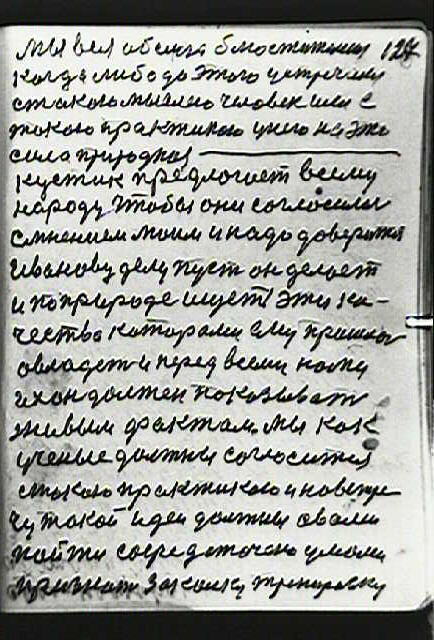 мы вся обсига бмостителни 127
когда либо до этого устречали
стакою мыслию человек или с
такою практикою у него на это
сила природная
кустик предлогоет всему
народу чтобы они согласилис
смнением моим и надо доверитса
Иванову делу пуст он делоет
и по природе ищет эти ка-
чества которами ему пришлос
овладет и перед всеми нами
их он должен показыват
живым фактам, мы как
ученые должни согласится
стакою практикою и новстре
чу такой идеи должни овали
пойти сосредоточено умоли
признат закалку тренировку